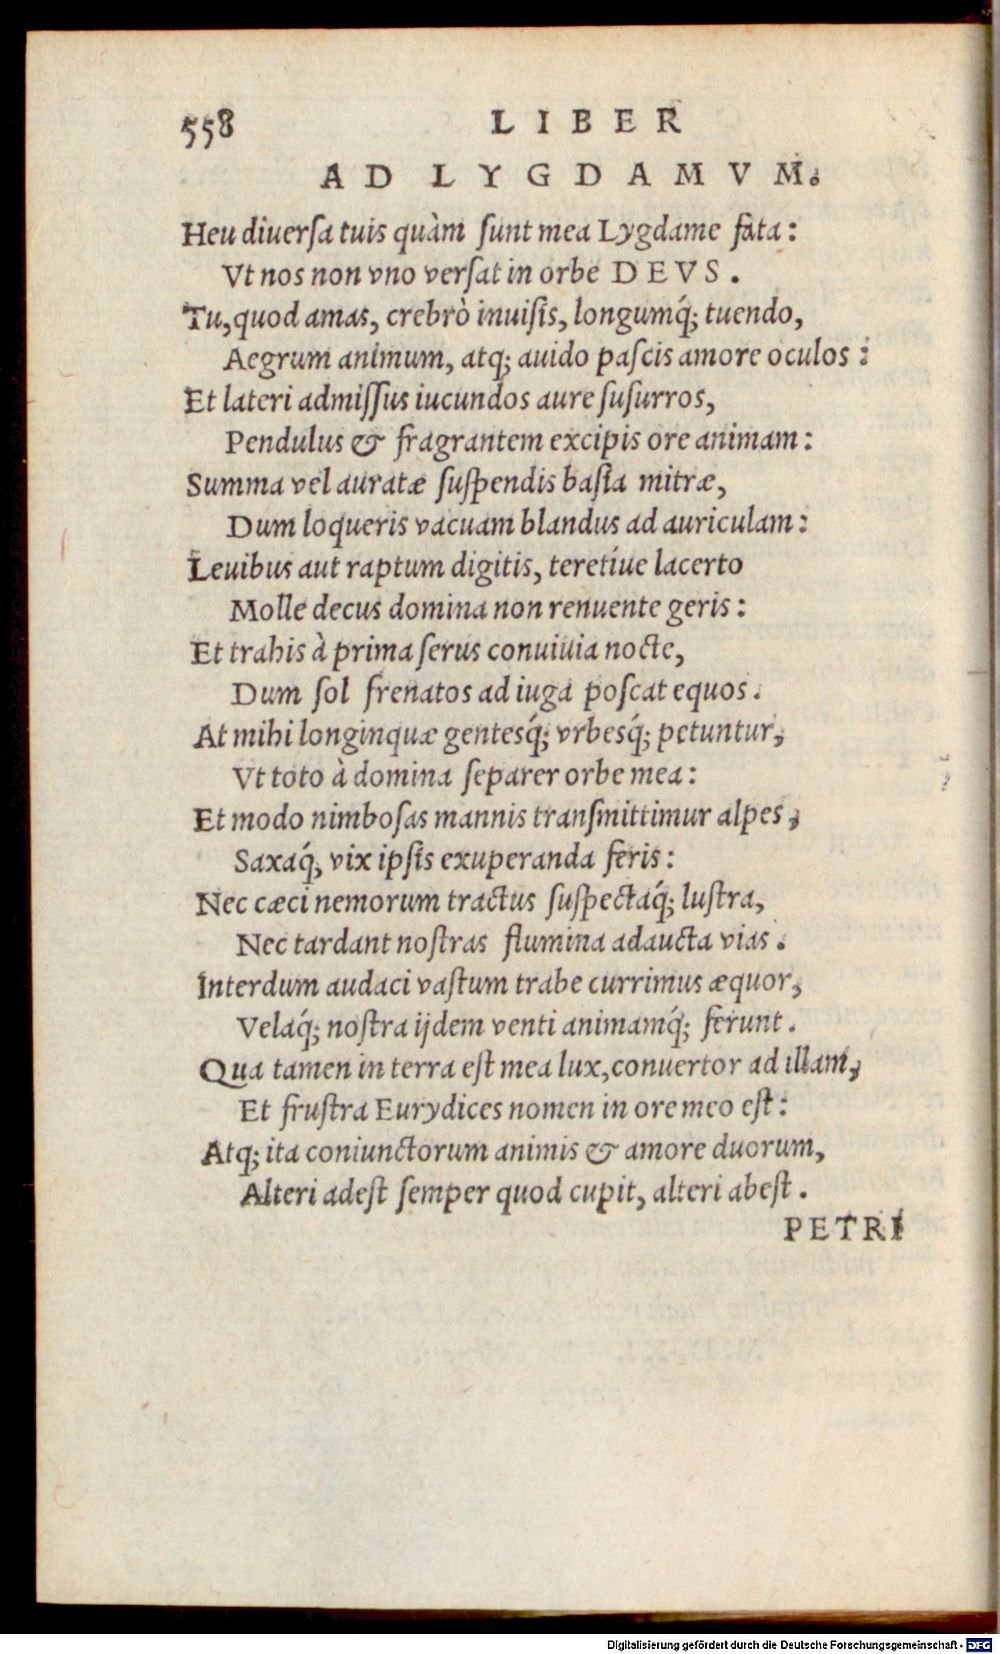 558 LIBER
AD LYGDAMVM.
Heu diuersa tuis quàm sunt mea Lygdame fata:
Vt nos non vno versat in orbe DEVS.
Tu, quod amas, crebrò inuisis, longumq́; tuendo,
Aegrum animum, atq; auido pascis amore oculos:
Et lateri admissus iucundos aure susurros,
Pendulus & fragrantem excipis ore animam:
Summa vel auratæ suspendis basia mitræ,
Dum loqueris vacuam blandus ad auriculam:
Leuibus aut raptum digitis, teretíue lacerto
Molle decus domina non renuente geris:
Et trahis à prima serus conuiuia nocte,
Dum sol frenatos ad iuga poscat equos.
At mihi longinquæ gentesq́; vrbesq́; petuntur,
Vt toto à domina separer orbe mea:
Et modo nimbosas mannis transmittimur alpes,
Saxaq́; vix ipsis exuperanda feris:
Nec cæci nemorum tractus suspectaq́; lustra,
Nec tardant nostras flumina adaucta vias.
Interdum audaci vastum trabe currimus æquor,
Velaq́; nostra ijdem venti animamq́; ferunt.
Qua tamen in terra est mea lux, conuertor ad illam,
Et frustra Eurydices nomen in ore meo est:
Atq; ita coniunctorum animis & amore duorum,
Alteri adest semper quod cupit, alteri abest.
PETRI
Digitalisierung gefördert durch die Deutsche Forschungsgemeinschaft - DFG